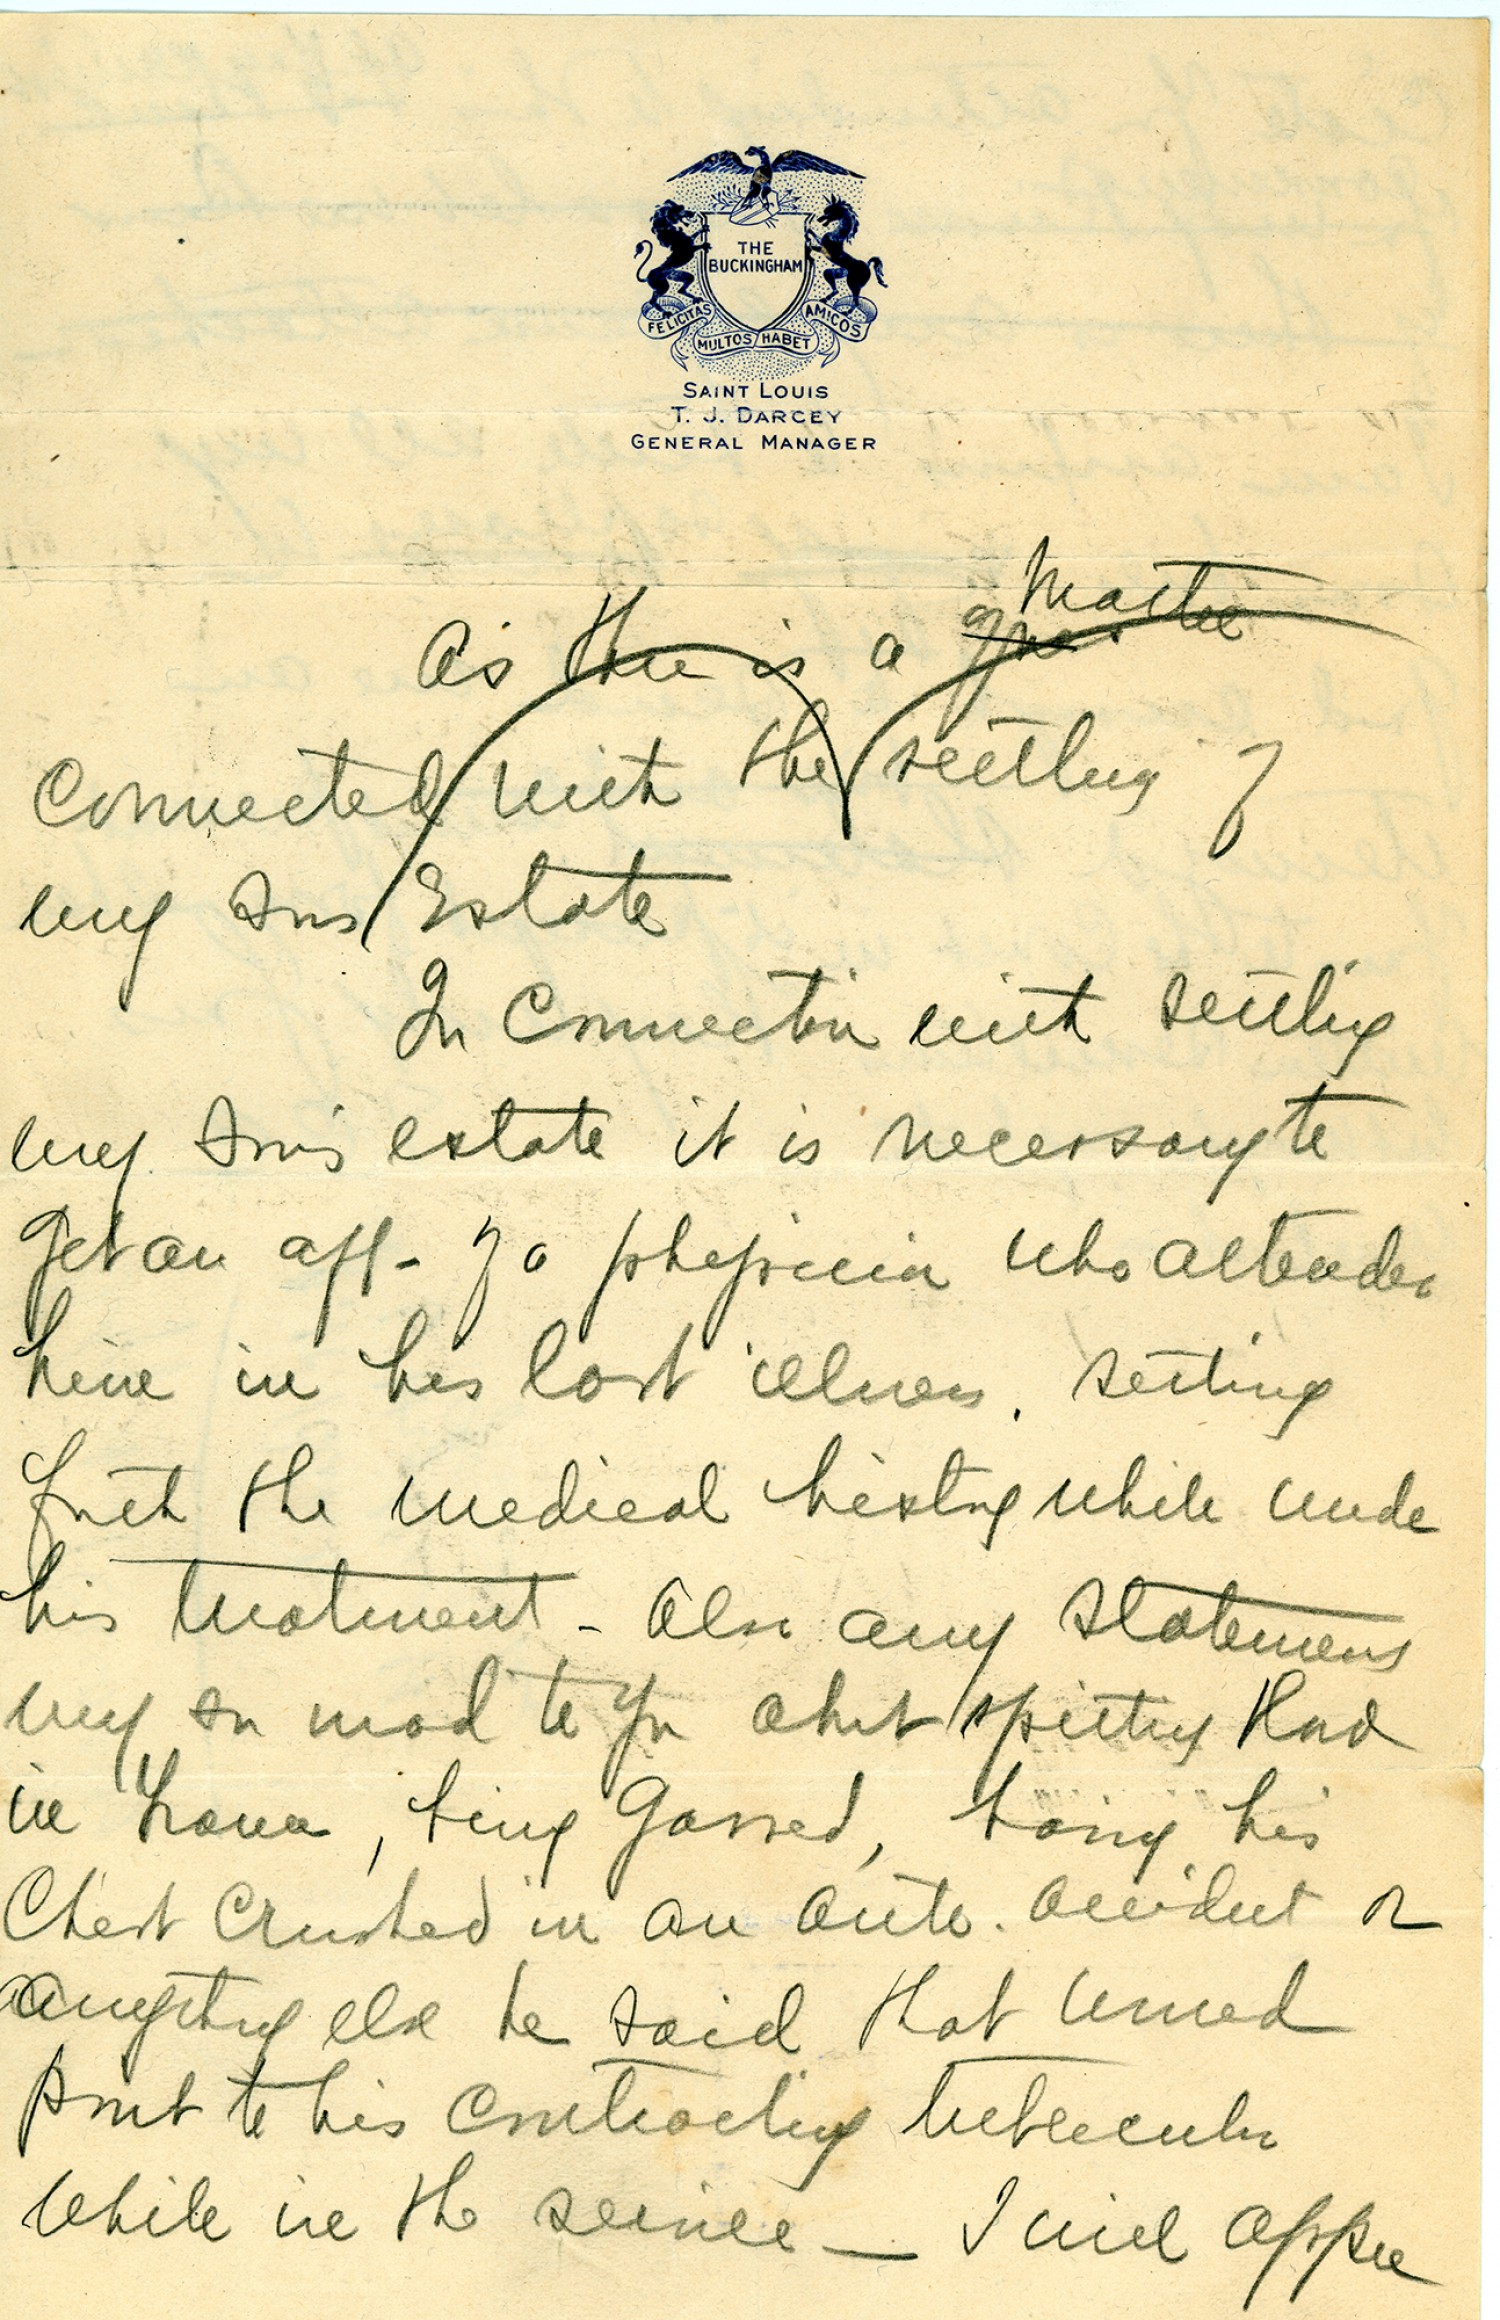 THE
BUCKINGHAM
FELICITAS MULTOS HABET AMICOS
SAINT LOUIS
T. J. DARCEY
GENERAL MANAGER
As there is a matter
connected with the settling of
my sons Estate
In connection with settling
my son's estate it is necessary to
get an aff- of a physician who attended
him in his last illness. setting
forth the medical history while under
his treatment - Also any statements
my son mad to you about spitting blood
in France, being gassed, having his
Chest crushed in an auto. accident or
anything else he said that would
point to his contracting tuberculo
while in the service — I will appre